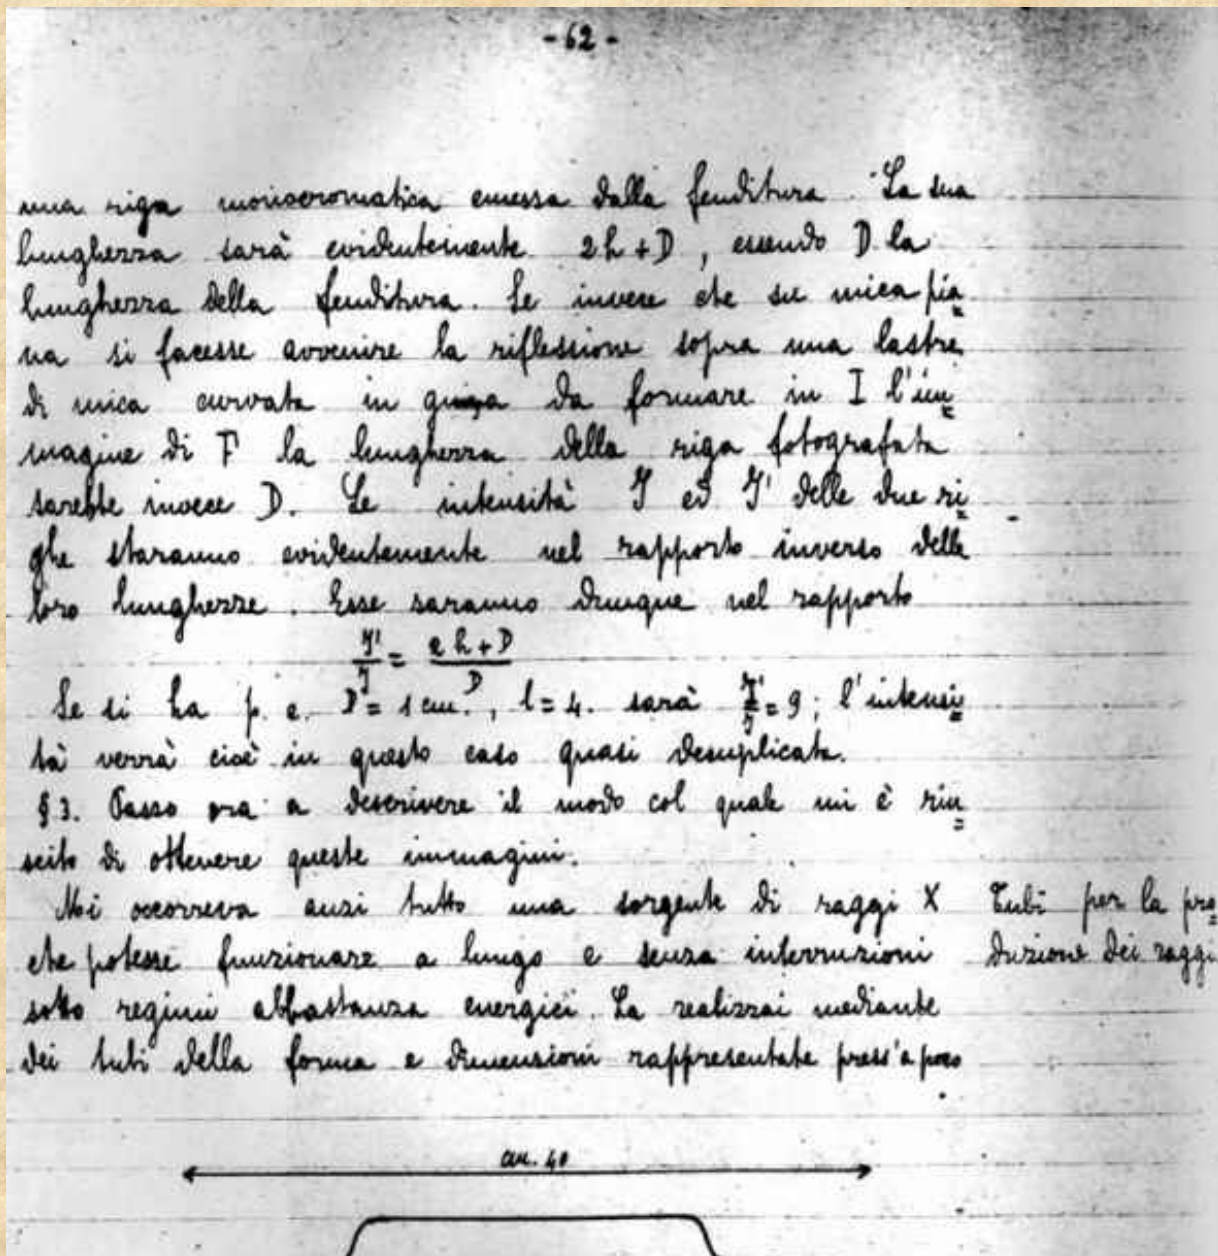 - 62 -
una riga monocromatica emessa dalla fenditura. La sua
lunghezza sarà evidentemente 2h+D, essendo D la
lunghezza della fenditura. Se invece che su mica pia
na si facesse avvenire la riflessione sopra una lastra
di mica curvata in guisa da formare in I l'im
magine di F la lunghezza della riga fotografata
sarebbe invece D. Le intensità J ed J' delle due ri
ghe staranno evidentemente nel rapporto inverso delle
loro lunghezze. Esse saranno dunque nel rapporto
J'/J = (2h+D)/D
Se si ha p. e. D = 1 cm., l = 4. sarà J'/J = 9; l'intensi
tà verrà cioè in questo caso quasi decuplicata.
§3. Passo ora a descrivere il modo col quale mi è riu
scito di ottenere queste immagini.
Mi occorreva anzi tutto una sorgente di raggi X
che potesse funzionare a lungo e senza interruzioni
sotto regimi abbastanza energici. La realizzai mediante
dei tubi della forma e dimensioni rappresentate press'a poco
Tubi per la pro
duzione dei raggi
cm. 40